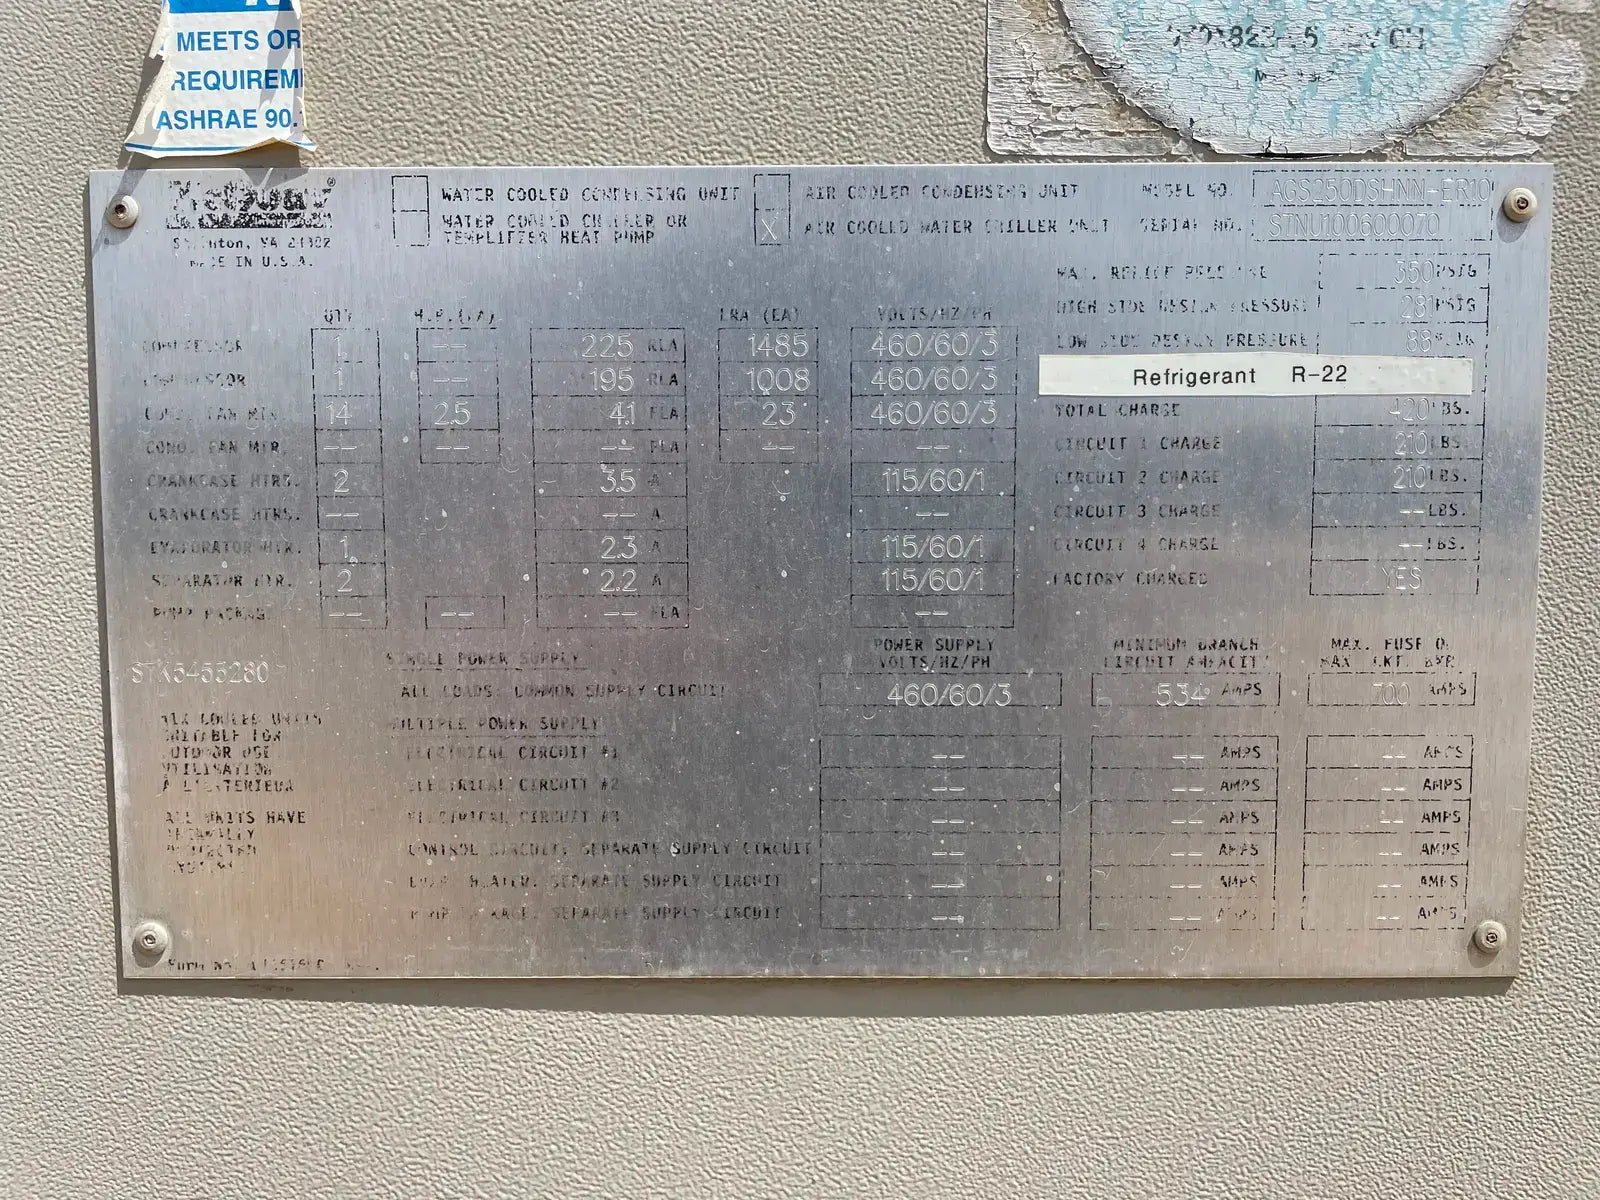 MEETS OR
REQUIREM
ASHRAE 90.1
McQuay®
Staunton, VA 24402
MADE IN U.S.A.
WATER COOLED CONDENSING UNIT
WATER COOLED CHILLER OR
TEMPLIFIER HEAT PUMP
AIR COOLED CONDENSING UNIT
X AIR COOLED WATER CHILLER UNIT
MODEL NO. AGS250DSHNN-ER10
SERIAL NO. STNU100600070
MAX. RELIEF PRESSURE 350 PSIG
HIGH SIDE DESIGN PRESSURE 281 PSIG
LOW SIDE DESIGN PRESSURE 88 PSIG
Refrigerant R-22
TOTAL CHARGE 420 LBS.
CIRCUIT 1 CHARGE 210 LBS.
CIRCUIT 2 CHARGE 210 LBS.
CIRCUIT 3 CHARGE -- LBS.
CIRCUIT 4 CHARGE -- LBS.
FACTORY CHARGED YES
QTY H.P.(EA) LRA (EA) VOLTS/HZ/PH
COMPRESSOR 1 -- 225 RLA 1485 460/60/3
COMPRESSOR 1 -- 195 RLA 1008 460/60/3
COND. FAN MTR. 14 2.5 41 FLA 23 460/60/3
COND. FAN MTR. -- -- -- FLA -- --
CRANKCASE HTRS. 2 3.5 A 115/60/1
CRANKCASE HTRS. -- -- A --
EVAPORATOR HTR. 1 2.3 A 115/60/1
SEPARATOR HTR. 2 2.2 A 115/60/1
PUMP PACKAGE -- -- -- FLA --
STK5455280
POWER SUPPLY
VOLTS/HZ/PH
MINIMUM BRANCH
CIRCUIT AMPACITY
MAX. FUSE OR
MAX. CKT. BKR.
SINGLE POWER SUPPLY
ALL LOADS: COMMON SUPPLY CIRCUIT 460/60/3 534 AMPS 700 AMPS
MULTIPLE POWER SUPPLY
ELECTRICAL CIRCUIT #1 -- -- AMPS -- AMPS
ELECTRICAL CIRCUIT #2 -- -- AMPS -- AMPS
ELECTRICAL CIRCUIT #3 -- -- AMPS -- AMPS
CONTROL CIRCUIT, SEPARATE SUPPLY CIRCUIT -- -- AMPS -- AMPS
EVAP. HEATER, SEPARATE SUPPLY CIRCUIT -- -- AMPS -- AMPS
PUMP PACKAGE, SEPARATE SUPPLY CIRCUIT -- -- AMPS -- AMPS
AIR COOLED UNITS
SUITABLE FOR
OUTDOOR USE
UTILISATION
À L'EXTERIEUR
ALL UNITS HAVE
THERMALLY
PROTECTED
MOTORS
Form No.